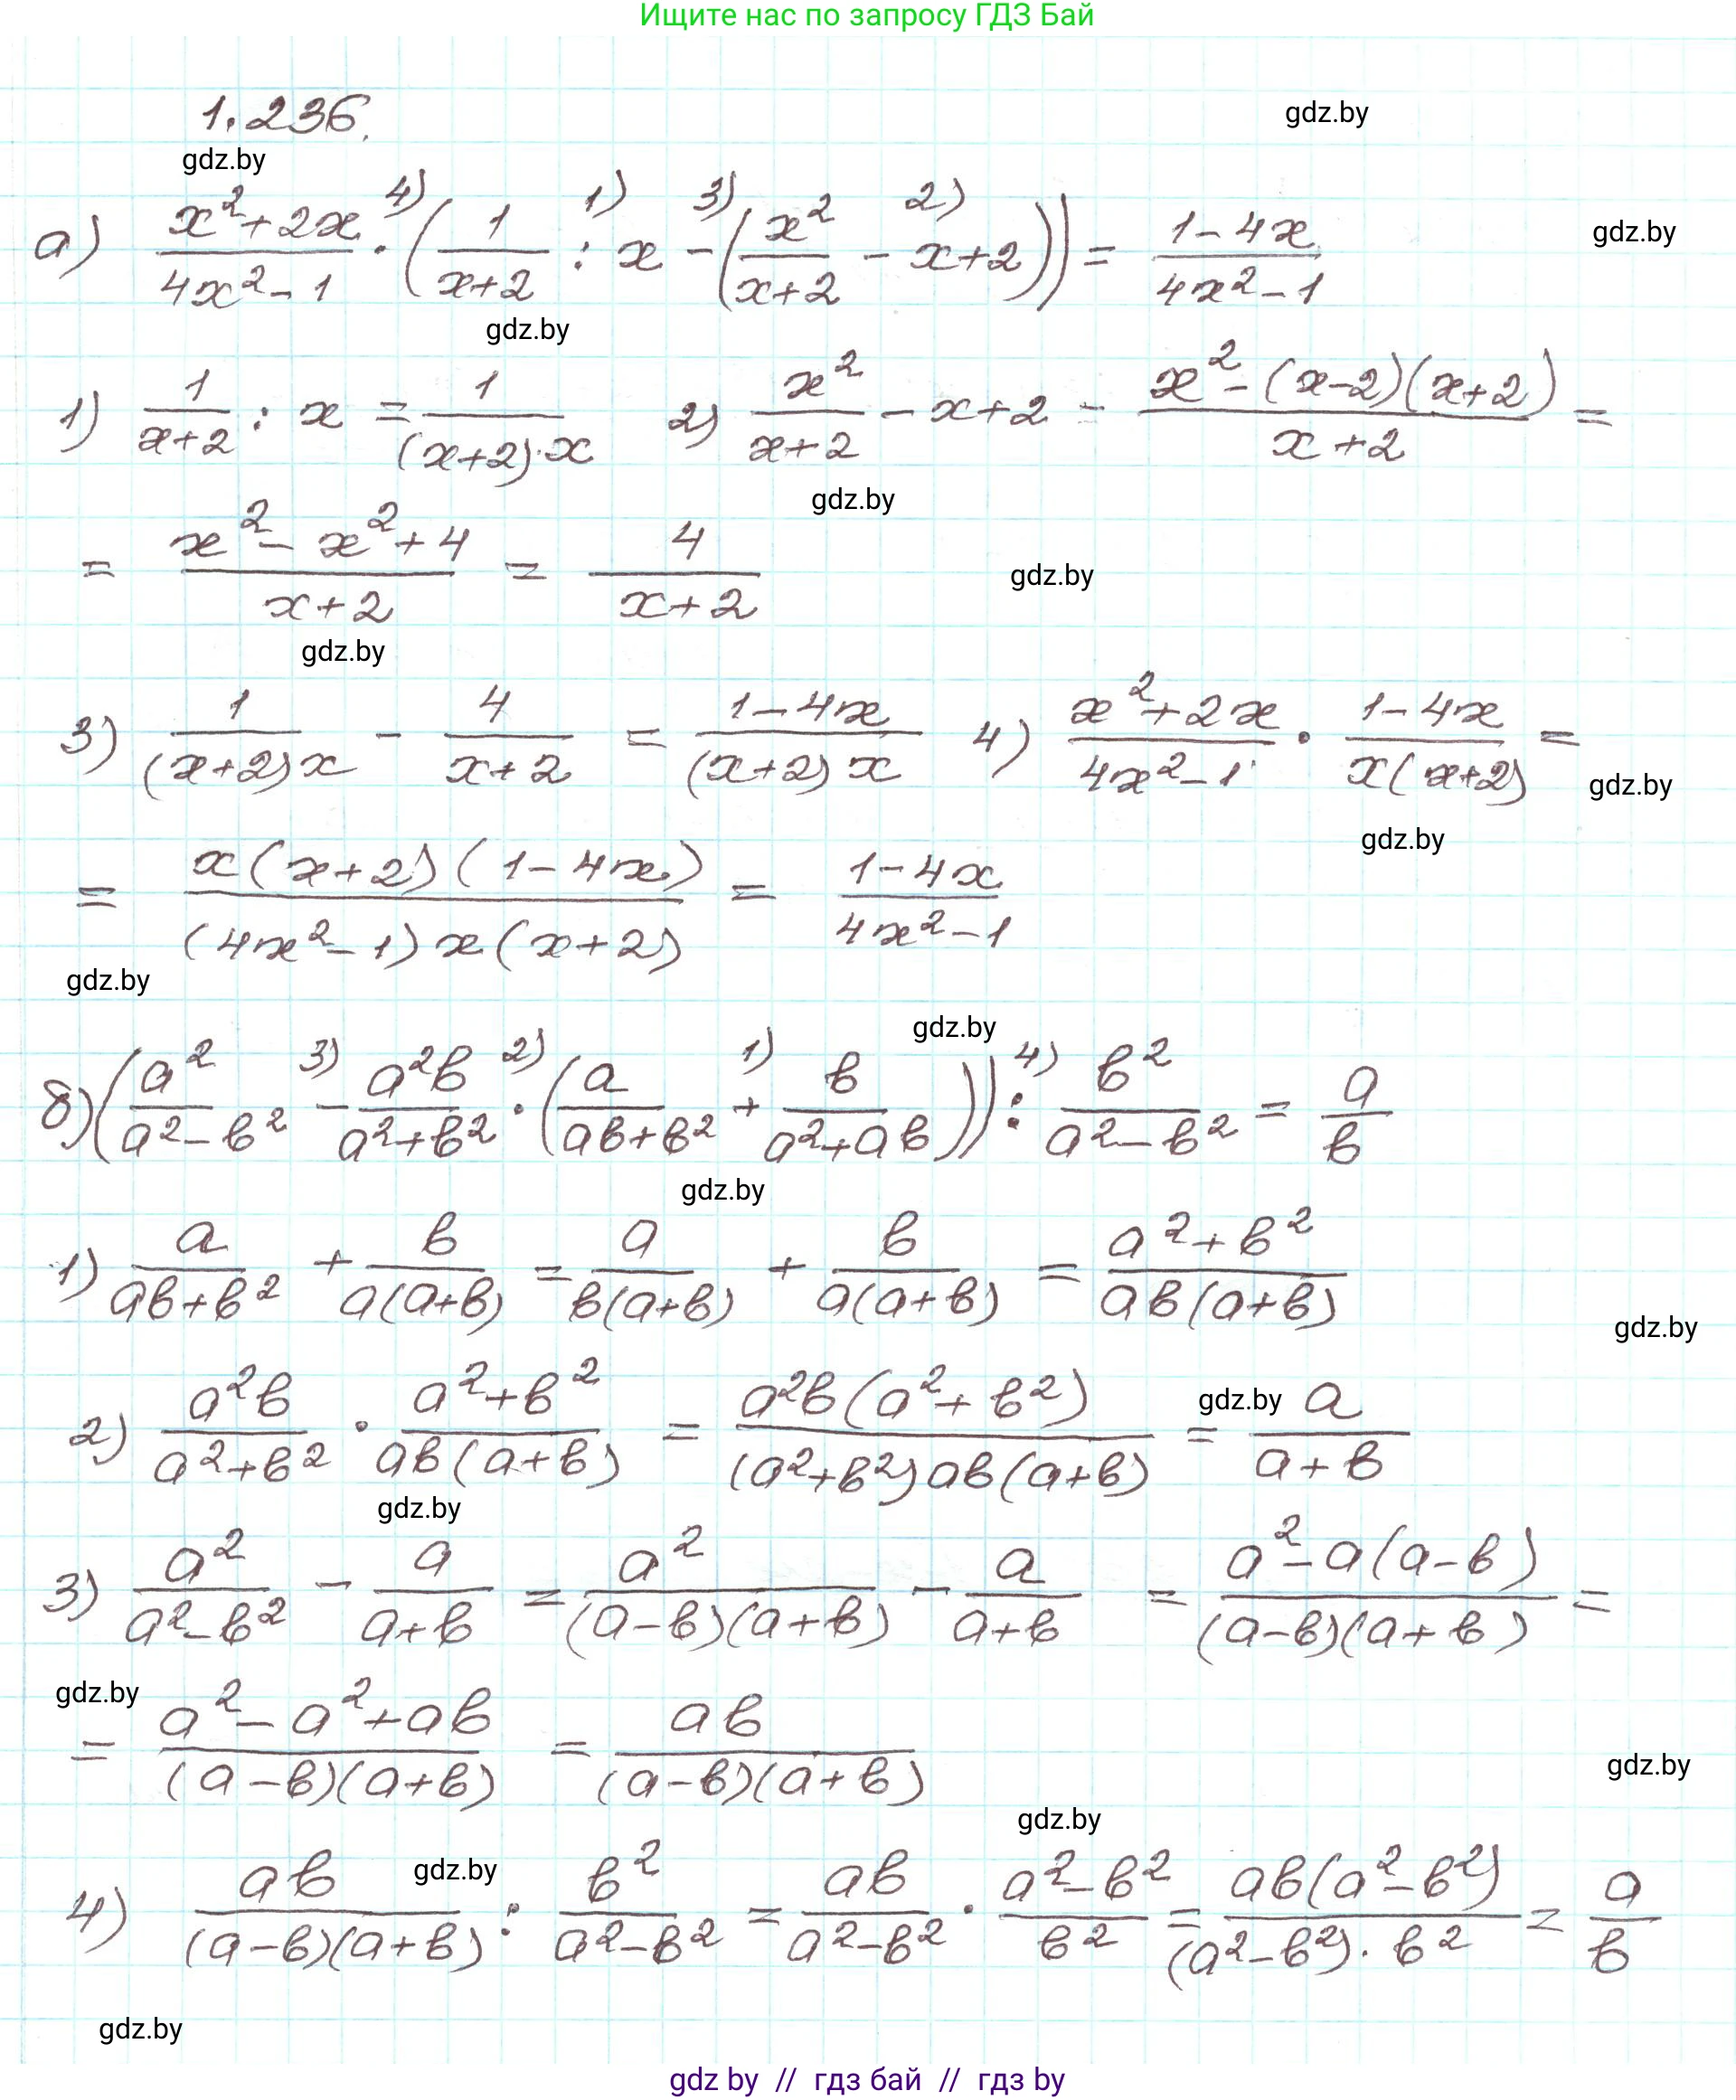 Ищите нас по запросу ГДЗ Бай
1.236.
gdz.by
gdz.by
а) (x²+2x)/(4x²-1) ·⁴⁾ (1/(x+2) :¹⁾ x -³⁾ (x²/(x+2) -²⁾ x+2)) = (1-4x)/(4x²-1)
gdz.by
gdz.by
1) 1/(x+2) : x = 1/((x+2)·x) 2) x²/(x+2) - x+2 = (x²-(x-2)(x+2))/(x+2) =
gdz.by
= (x²-x²+4)/(x+2) = 4/(x+2)
gdz.by
gdz.by
3) 1/((x+2)x) - 4/(x+2) = (1-4x)/((x+2)x) 4) (x²+2x)/(4x²-1) · (1-4x)/(x(x+2)) =
gdz.by
gdz.by
= (x(x+2)(1-4x))/((4x²-1)x(x+2)) = (1-4x)/(4x²-1)
gdz.by
gdz.by
б) (a²/(a²-b²) -³⁾ a²b/(a²+b²) ·²⁾ (a/(ab+b²) +¹⁾ b/(a²+ab))) :⁴⁾ b²/(a²-b²) = a/b
gdz.by
1) a/(ab+b²) + b/(a(a+b)) = a/(b(a+b)) + b/(a(a+b)) = (a²+b²)/(ab(a+b))
gdz.by
2) a²b/(a²+b²) · (a²+b²)/(ab(a+b)) = (a²b(a²+b²))/((a²+b²)ab(a+b)) = a/(a+b)
gdz.by
gdz.by
3) a²/(a²-b²) - a/(a+b) = a²/((a-b)(a+b)) - a/(a+b) = (a²-a(a-b))/((a-b)(a+b)) =
gdz.by
= (a²-a²+ab)/((a-b)(a+b)) = ab/((a-b)(a+b))
gdz.by
gdz.by
gdz.by
4) ab/((a-b)(a+b)) : b²/(a²-b²) = ab/(a²-b²) · (a²-b²)/b² = (ab(a²-b²))/((a²-b²)·b²) = a/b
gdz.by
gdz by // гдз бай // гдз by